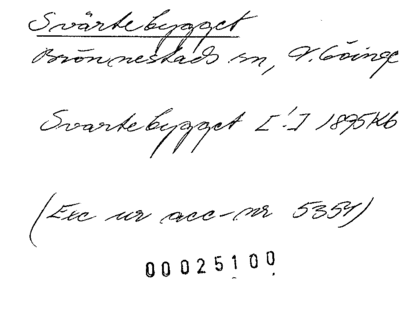 Svärtebygget
Brönnestads sn, V. Göinge
Svartebygget [!] 1895 Kb
(Exc ur acc-nr 5351)
00025100